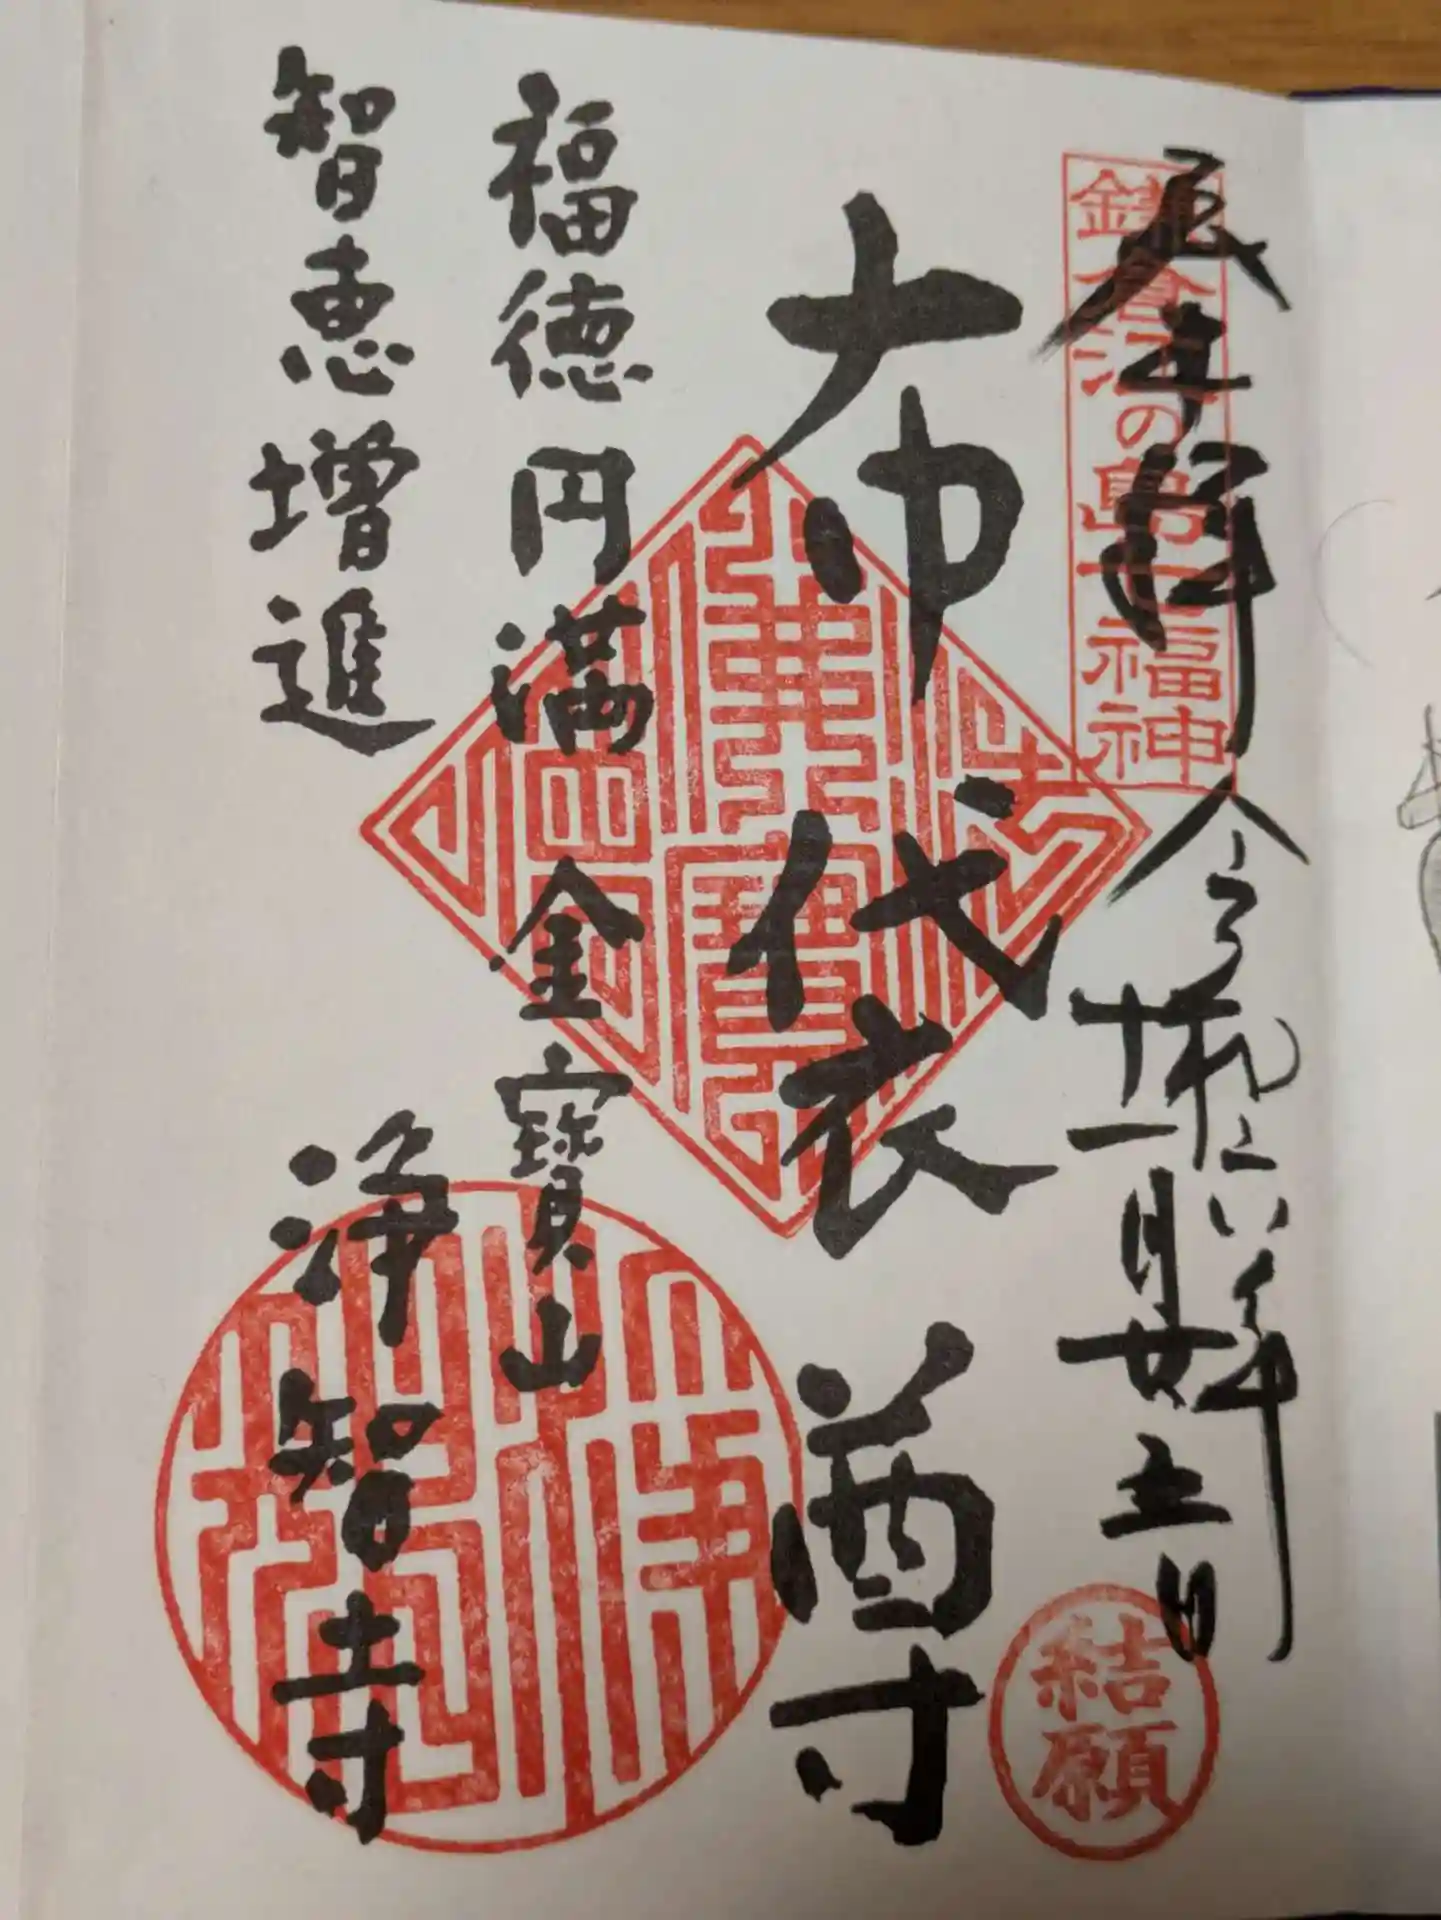 鎌倉江の島七福神
辰年拝 令和六年
十一月廿五日
結願
布袋尊
福徳円満 金寶山
智恵増進 浄智寺